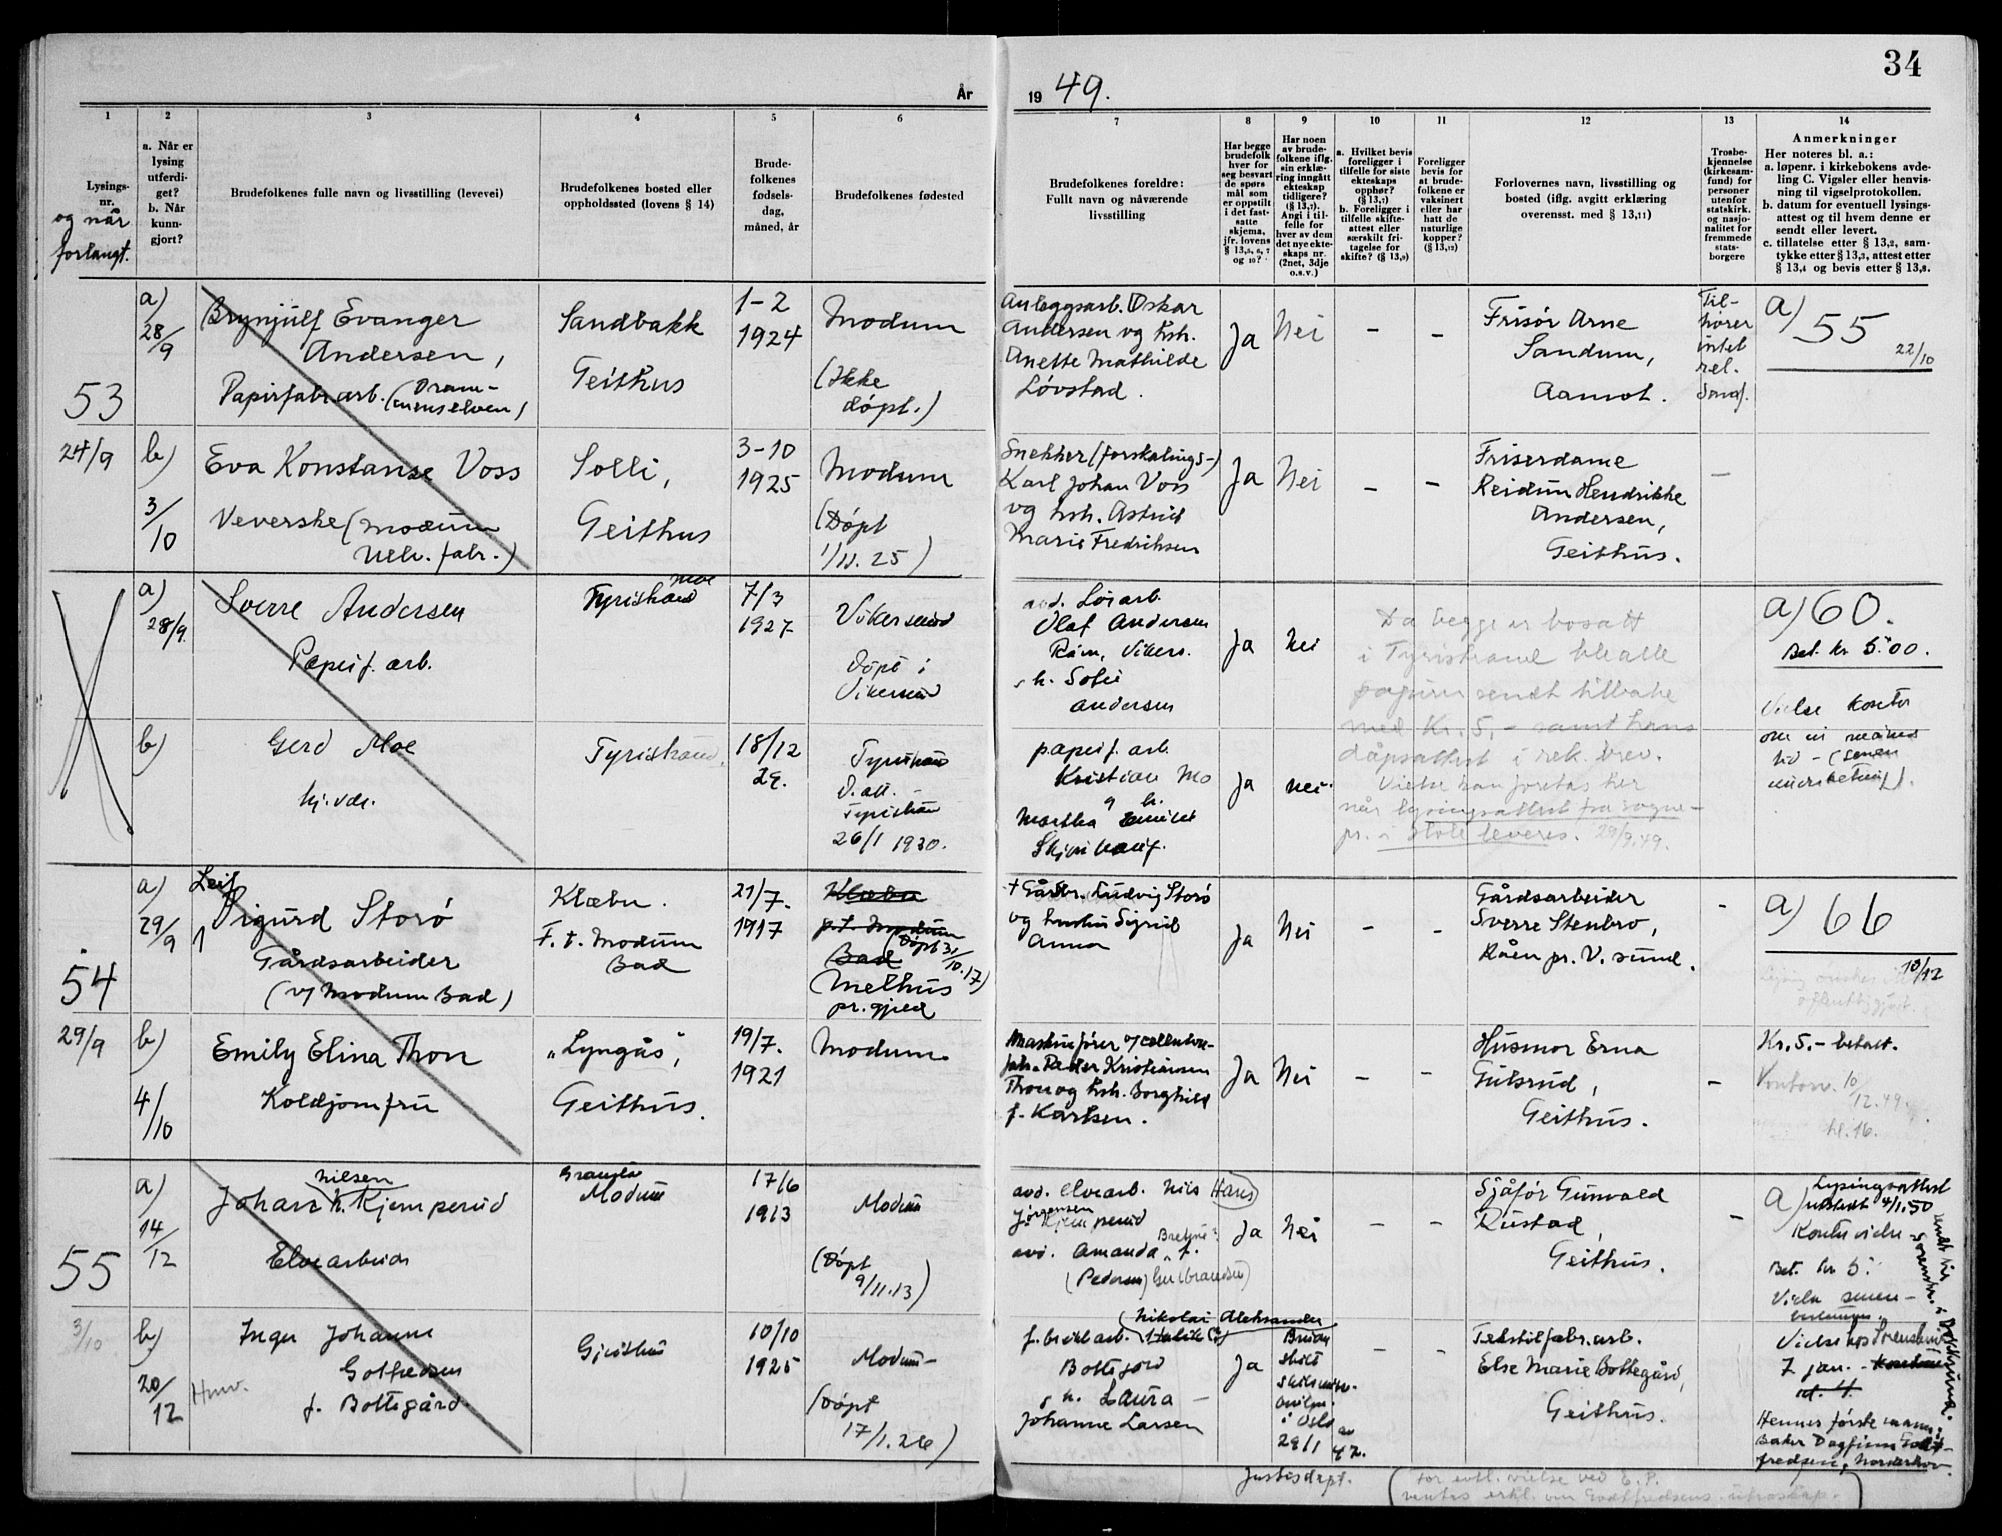 År
19 49.
34
1
Lysings-
nr.
og når
forlangt.
2
a. Når er
lysing
utferdi-
get?
b. Når
kunn-
gjort?
3
Brudefolkenes fulle navn og livsstilling (levevei)
4
Brudefolkenes bosted eller
oppholdssted (lovens § 14)
5
Brude-
folkenes
fødsels-
dag,
måned, år
6
Brudefolkenes fødested
7
Brudefolkenes foreldre:
Fullt navn og nåværende
livsstilling
8
Har begge
brudefolk
hver for
seg besvart
de spørs
mål som
er oppstilt
i det fast-
satte
skjema,
jfr. lovens
§ 13,5, 6, 7
og 10?
9
Har noen
av brude-
folkene iflg.
sin erklæ-
ring inngått
ekteskap
tidligere?
(§ 13,7).
Angi i til-
felle for
hver av dem
det nye ekte-
skaps nr.
(2net, 3dje
o.s.v.)
10
a. Hvilket bevis
foreligger i
tilfelle for siste
ekteskaps
opphør?
(§ 13,7)
b. Foreligger i
tilfelle skifte-
attest eller
særskilt fri-
tagelse for
skifte? (§ 13,9)
11
Foreligger
bevis for
at brude-
folkene er
vaksinert
eller har
hatt de
naturlige
kopper?
(§ 13,12)
12
Forlovernes navn, livsstilling og
bosted (iflg. avgitt erklæring
overensst. med § 13,11)
13
Trosbe-
kjennelse
(kirkesam-
fund) for
personer
utenfor
statskirk.
og nasjo-
nalitet for
fremmede
stats-
borgere
14
Anmerkninger
Her noteres bl. a.:
a. løpenr. i kirkebokens avde-
ling C. Vigsler eller henvis-
ning til vigselprotokollen.
b. datum for eventuell lysings-
attest og til hvem denne er
sendt eller levert.
c. tillatelse etter § 13,2, sam-
tykke etter § 13,3, attest etter
§ 13,4 og bevis etter § 13,8.
53
24/9
a)
28/9
Brynjulf Evanger
Andersen,
Papirfabr.arb. (Dram-
menselven)
Sandbakk
Geithus
1-2
1924
Modum
(Ikke
døpt.)
Anleggsarb. Oskar
Andersen og hsh.
Anette Mathilde
Løvstad.
Ja
Nei
-
-
Frisør Arne
Sandum,
Aamot.
Til-
hører
intet
rel.
a)
55
22/10
b)
3/10
Eva Konstanse Voss
Veverske (Modum
Uldv. fabr.)
Solli,
Geithus
3-10
1925
Modum
(Døpt
1/11. 25)
Snekker (forskalings-)
Karl Johan Voss
og hsh. Astrid
Marie Fredriksen
Ja
Nei
-
-
Friserdame
Reidun Hendrikke
Andersen,
Geithus.
-
a)
28/9.
Sverre Andersen
Papirf. arb.
Tyristrand
7/3
1927
Vikersund
Døpt i
Vikersund
Olaf Andersen
Råen, Vikers.
h. Sofie
Andersen
Ja
Nei
Da begge er bosatt
i Tyristrand ble alle
papirer sendt tilbake
med kr. 5,- samt hans
dåpsattest i rek. brev.
Vielse kan foretas her
når lysingsattest fra sogne-
pr. i Hole leveres. 29/9.49.
a) 60.
Bet. kr 5.00.
b)
Gerd Moe
hj.vær.
Tyristrand.
18/12
29.
Tyristrand
D.att.
Tyristrand
26/1 1930.
papirf. arb.
Kristian Mo
Ja
nei.
54
29/9
a)
29/9
Leif
Sigurd Storø
Gårdsarbeider
(v/ Modum Bad)
Klæbu.
F. t. Modum
Bad
21/7.
1917
Klæbu
p.t. Modum
Bad
(Døpt 31/10.17)
Melhus
pr.gjeld
+ Gårdbr. Ludvig Storø
og hustru Sigrid
Anna
Ja
Nei
-
-
Gårdsarbeider
Sverre Stenbro,
Råen pr. V. sund.
-
a) 66
10/12
b)
4/10
Emily Elina Thon
Koldjomfru
"Lyngås",
Geithus.
19/7.
1921
Modum.
Maskinfører v/ cellulose-
fabr. Peder Kristiansen
Thon og hsh. Borghild
f. Karlsen.
Ja
Nei
-
-
Husmor Erna
Gulsrud,
Geithus.
-
Kr. 5.- betalt.
10/12.49.
kl. 16.
55
3/10
a)
14/12
Nilsen
Johan N. Kjemperud
Elvearbeider
Modum
17/6
1913
Modum
(Døpt
9/11.13)
avd. elvearb. Nils Hans
Jørgensen
Kjemperud
avd. Amanda f.
(Pedersen) Gulbrandsen)
Ja
Nei
-
-
Sjåfør Gunvald
Rustad,
Geithus.
-
a) Lysingsattest
utstedt 4/1.50
Bet. kr 5.-
b)
20/12
Inger Johanne
Gotfredsen
f. Bottegård.
Geithus
10/10
1925
Modum-
(Døpt
17/1.26)
(Nikolai Aleksander
Ja
i Oslo
29/1 47.
-
-
Tekstilfabr.arb.
Else Marie Bottegård,
Geithus.
7 jan.
Hennes første mann:
Baker Dagfinn Gott-
fredsen, Norderhov.
Justisdept.
(for evtl. vielse ved E. P.
ventes erkl. om Godtfredsens utroskap.